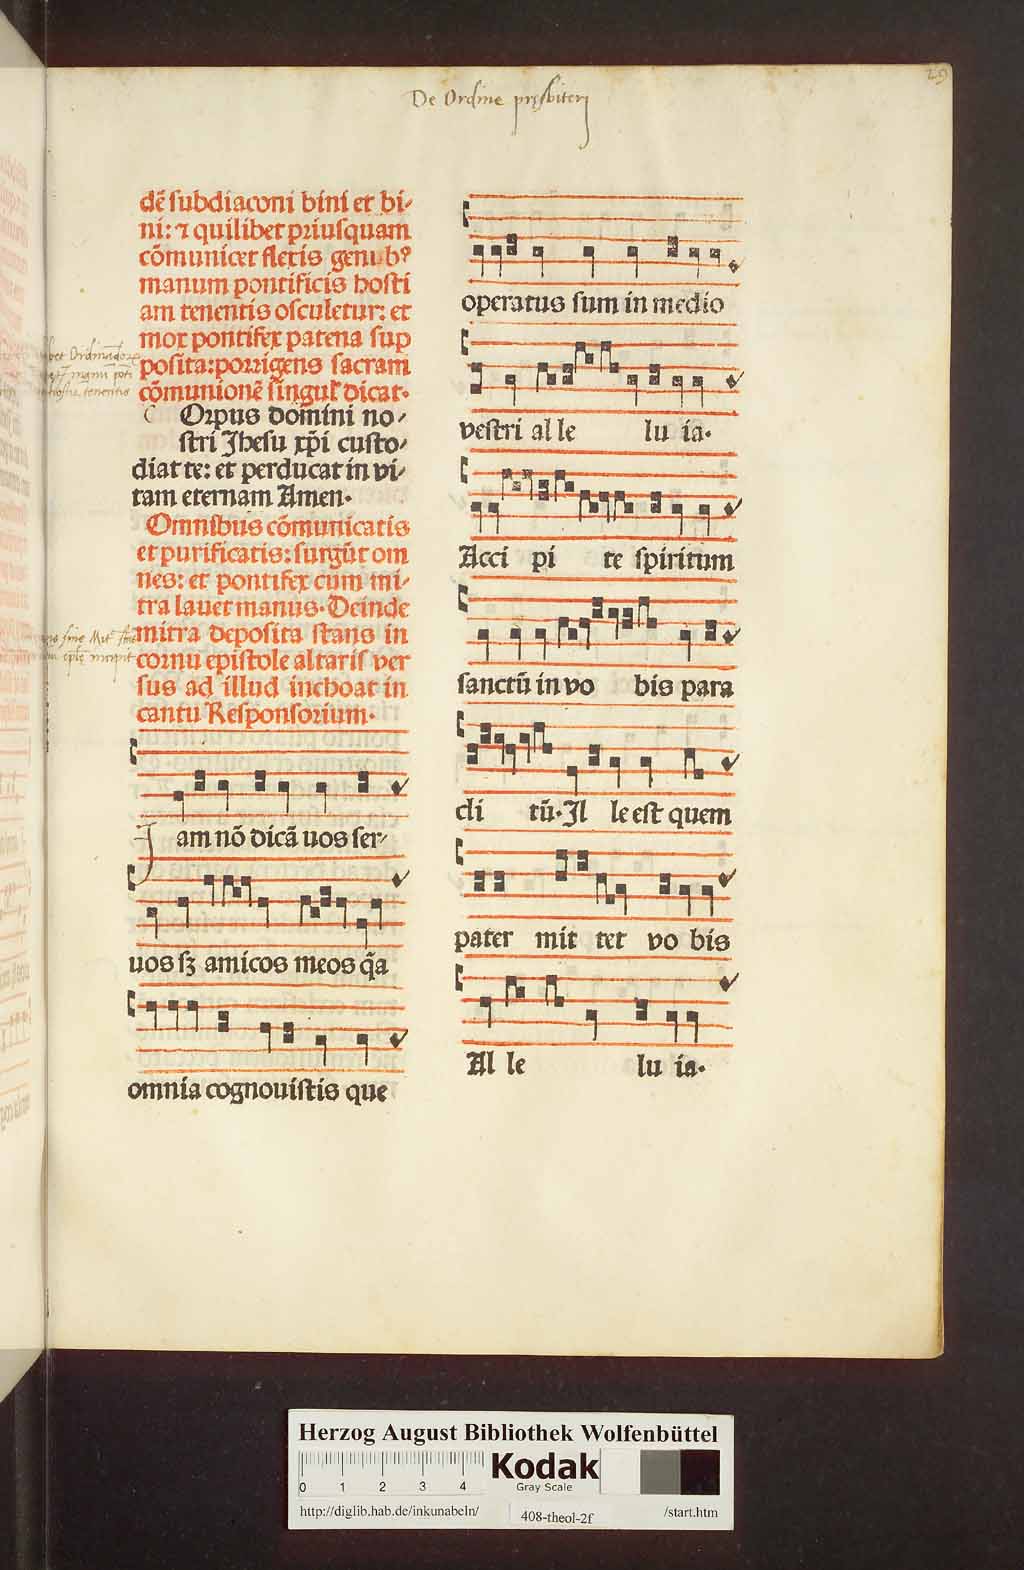 De Ordine pręsbiterj
29
dē subdiaconi bini et bi-
ni: ⁊ quilibet priusquam
cōmunicet flexis genubꝰ
manum pontificis hosti
am tenentis osculetur: et
mox pontifex patena sup
posita: porrigens sacram
cōmunionē singul' dicat.
COrpus domini no-
stri Jhesu xp̄i custo-
diat te: et perducat in vi-
tam eternam Amen.
Omnibus cōmunicatis
et purificatis: surgūt om
nes: et pontifex cum mi-
tra lauet manus. Deinde
mitra deposita stans in
cornu epistole altaris ver
sus ad illud inchoat in
cantu Responsorium.
Jam nō dicā uos ser-
uos sꝫ amicos meos q̄a
omnia cognouistis que
operatus sum in medio
vestri al le lu ia.
Acci pi te spiritum
sanctū in vo bis para
cli tū. Il le est quem
pater mit tet vo bis
Al le lu ia.
Herzog August Bibliothek Wolfenbüttel
0 1 2 3 4
Kodak
Gray Scale
http://diglib.hab.de/inkunabeln/ 408-theol-2f /start.htm